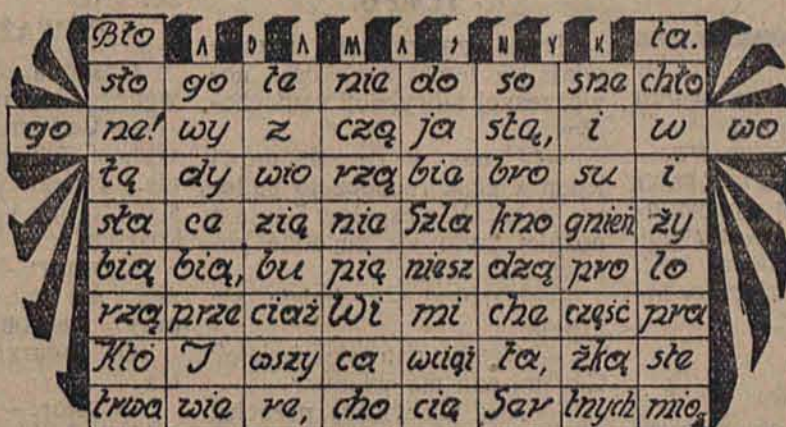 Bło A D A M A S N Y K ta.
sło go te nie do so sne chło
go ne! wy z czą ja stą, i w wo
tą dy wio rzą bie bro su i
sta ce zią nie Szla kno gnień ży
bią bią, bu pią niesz dzą pro lo
rzą prze ciaż Wi mi che część pra
Kto I wszy ca wciąż ta, żką ste
trwa wie re, cho cie Ser tnych mio,